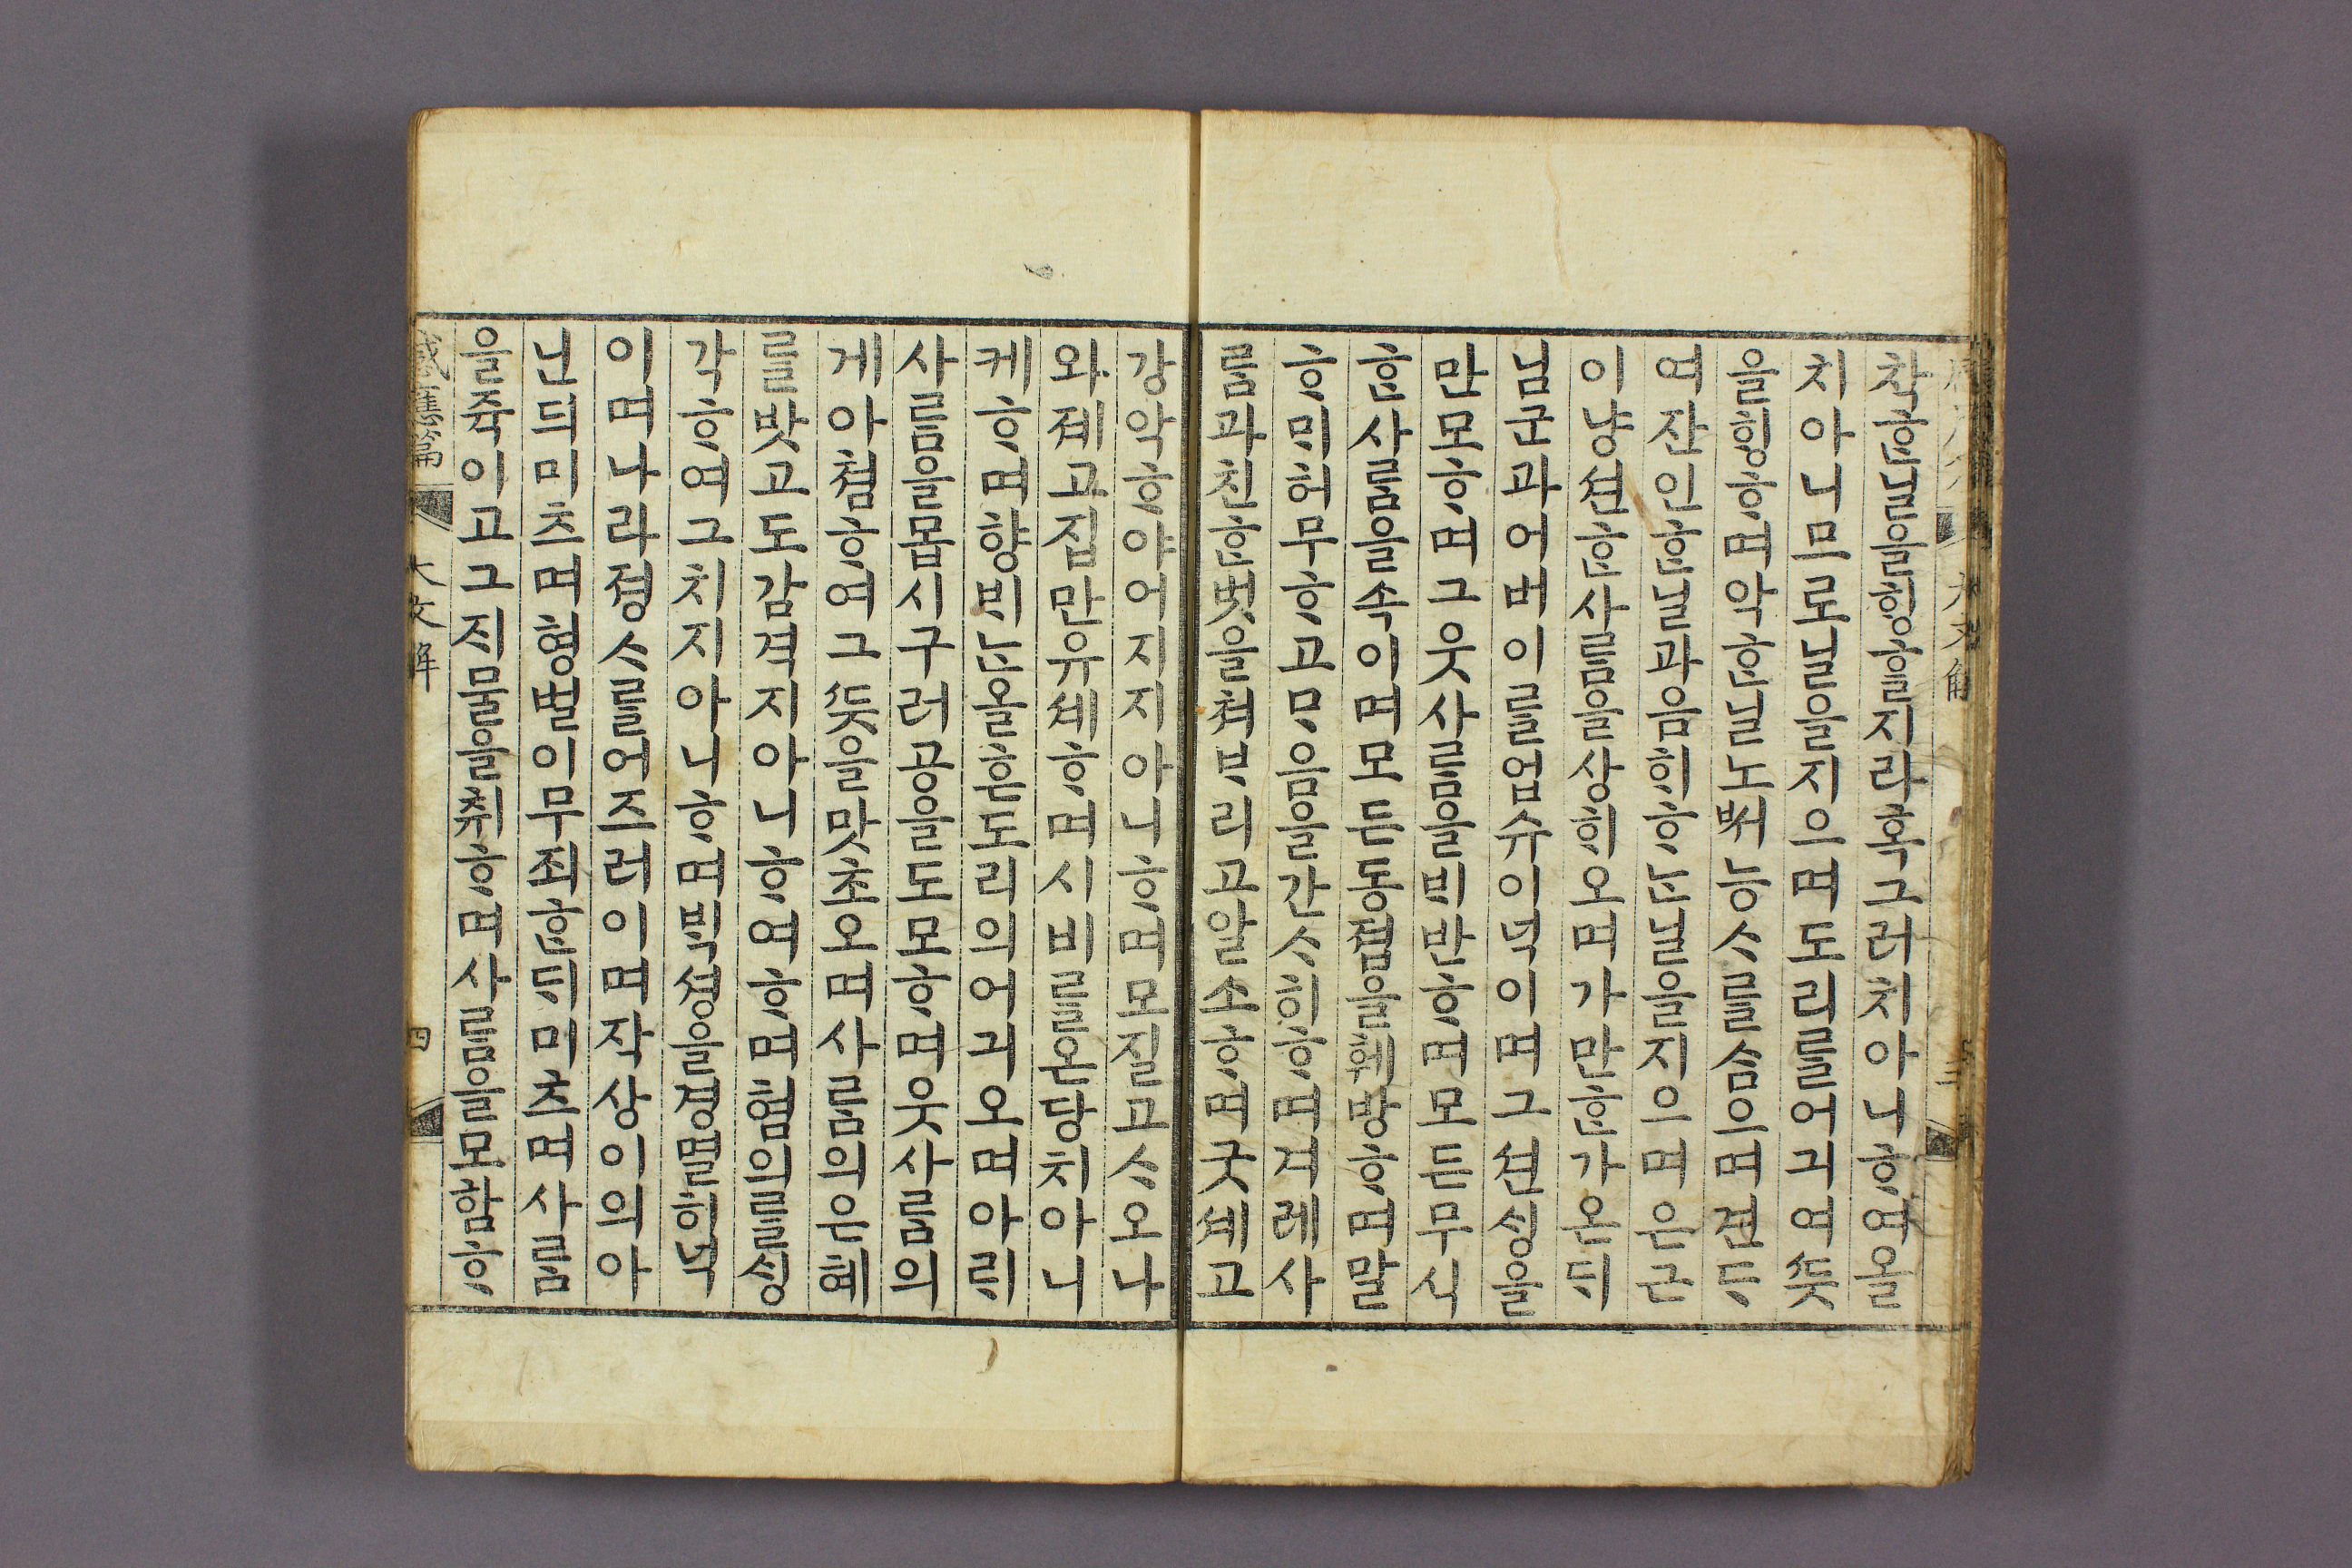 大文解 三
챡ᄒᆞᆫ일을ᄒᆡᆼᄒᆞᆯ지라혹그러치아니ᄒᆞ여올
치아니ᄆᆡ로일을지으며도리를어긔여ᄯᅳᆺ
을ᄒᆡᆼᄒᆞ며악ᄒᆞᆫ일노ᄡᅥ능ᄉᆞ를ᄉᆞᆷ으며견ᄃᆞ
여잔인ᄒᆞᆫ일과음ᄒᆡᄒᆞᄂᆞᆫ일을지으며은근
이냥션ᄒᆞᆫ사ᄅᆞᆷ을상ᄒᆡ오며가만ᄒᆞᆫ가온ᄃᆡ
님군과어버이를업수이넉이며그션ᄉᆡᆼ을
만모ᄒᆞ며그웃사ᄅᆞᆷ을ᄇᆡ반ᄒᆞ며모든무식
ᄒᆞᆫ사ᄅᆞᆷ을속이며모든동졉을훼방ᄒᆞ며말
ᄒᆞᄆᆡ허무ᄒᆞ고ᄆᆞ음을간ᄉᆞ히ᄒᆞ며겨레사
ᄅᆞᆷ과친ᄒᆞᆫ벗을쳐ᄇᆞ리고알소ᄒᆞ며굿셰고
강악ᄒᆞ야어지지아니ᄒᆞ며모질고ᄉᆞ오나
와졔고집만유셰ᄒᆞ며시비를온당치아니
케ᄒᆞ며향ᄇᆡᄂᆞᆫ올흔도리의어긔오며아ᄅᆡ
사ᄅᆞᆷ을몹시구러공을도모ᄒᆞ며웃사ᄅᆞᆷ의
게아쳠ᄒᆞ여그ᄯᅳᆺ을맛초오며사ᄅᆞᆷ의은혜
를맛고도감격지아니ᄒᆞ여ᄒᆞ며혐의를ᄉᆡᆼ
각ᄒᆞ여그치지아니ᄒᆞ며ᄇᆡᆨ셩을경멸히넉
이며나라졍ᄉᆞ를어즈러이며작상이의아
닌듸미츠며형벌이무죄ᄒᆞᆫᄃᆡ미츠며사ᄅᆞᆷ
을쥭이고그ᄌᆡ물을취ᄒᆞ며사ᄅᆞᆷ을모함ᄒᆞ
感應篇 大文解 四